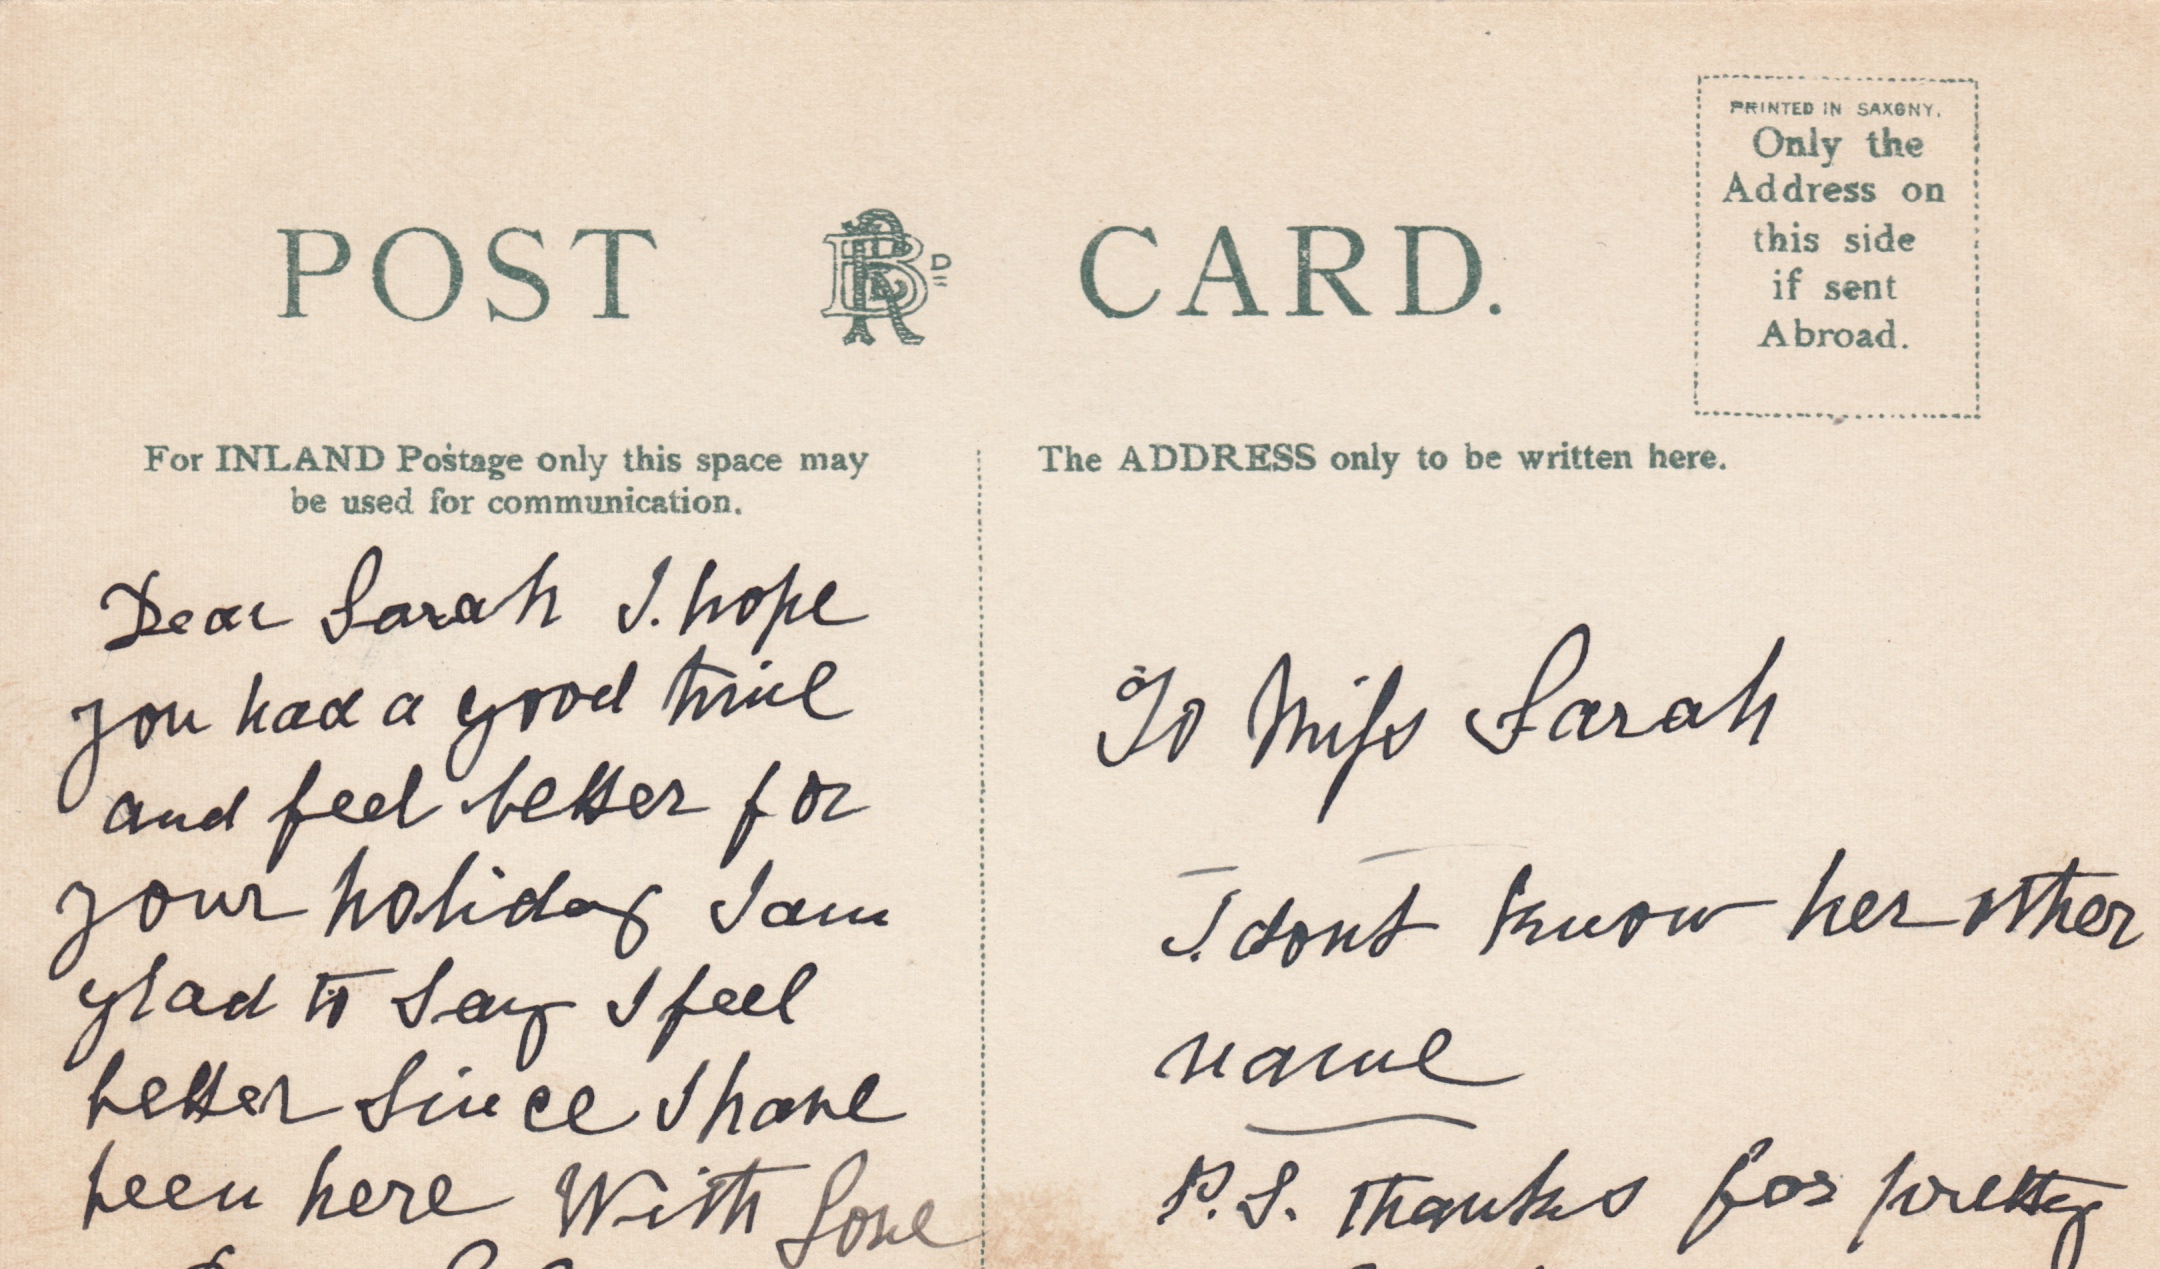 PRINTED IN SAXONY.
Only the
Address on
this side
if sent
Abroad.
POST CARD.
For INLAND Postage only this space may
be used for communication.
Dear Sarah I. hope
you had a good time
and feel better for
your holiday I am
glad to say I feel
better Since I have
been here With Love
The ADDRESS only to be written here.
To Miss Sarah
I. dont know her other
name
P.S. thanks for pretty